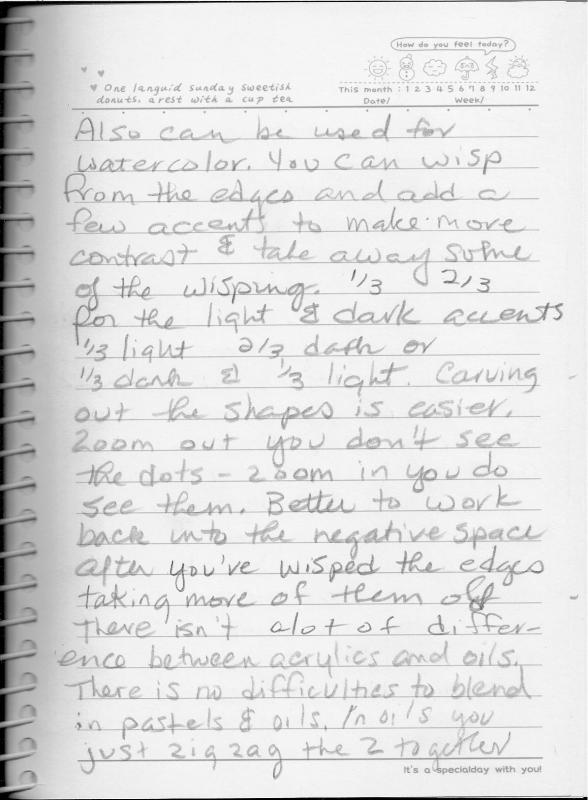 How do you feel today?
One languid sunday sweetish
donuts. a rest with a cup tea
This month : 1 2 3 4 5 6 7 8 9 10 11 12
Date/ Week/
Also can be used for
watercolor. You can wisp
from the edges and add a
few accents to make more
contrast & take away some
of the wisping. 1/3 2/3
for the light & dark accents
1/3 light 2/3 dark or
1/3 dark & 1/3 light. Carving
out the shapes is easier.
Zoom out you don't see
the dots - zoom in you do
see them. Better to work
back into the negative space
after you've wisped the edges
taking more of them off
There isn't alot of differ-
ence between acrylics and oils.
There is no difficulties to blend
in pastels & oils. In oils you
just zig zag the 2 together
It's a specialday with you!